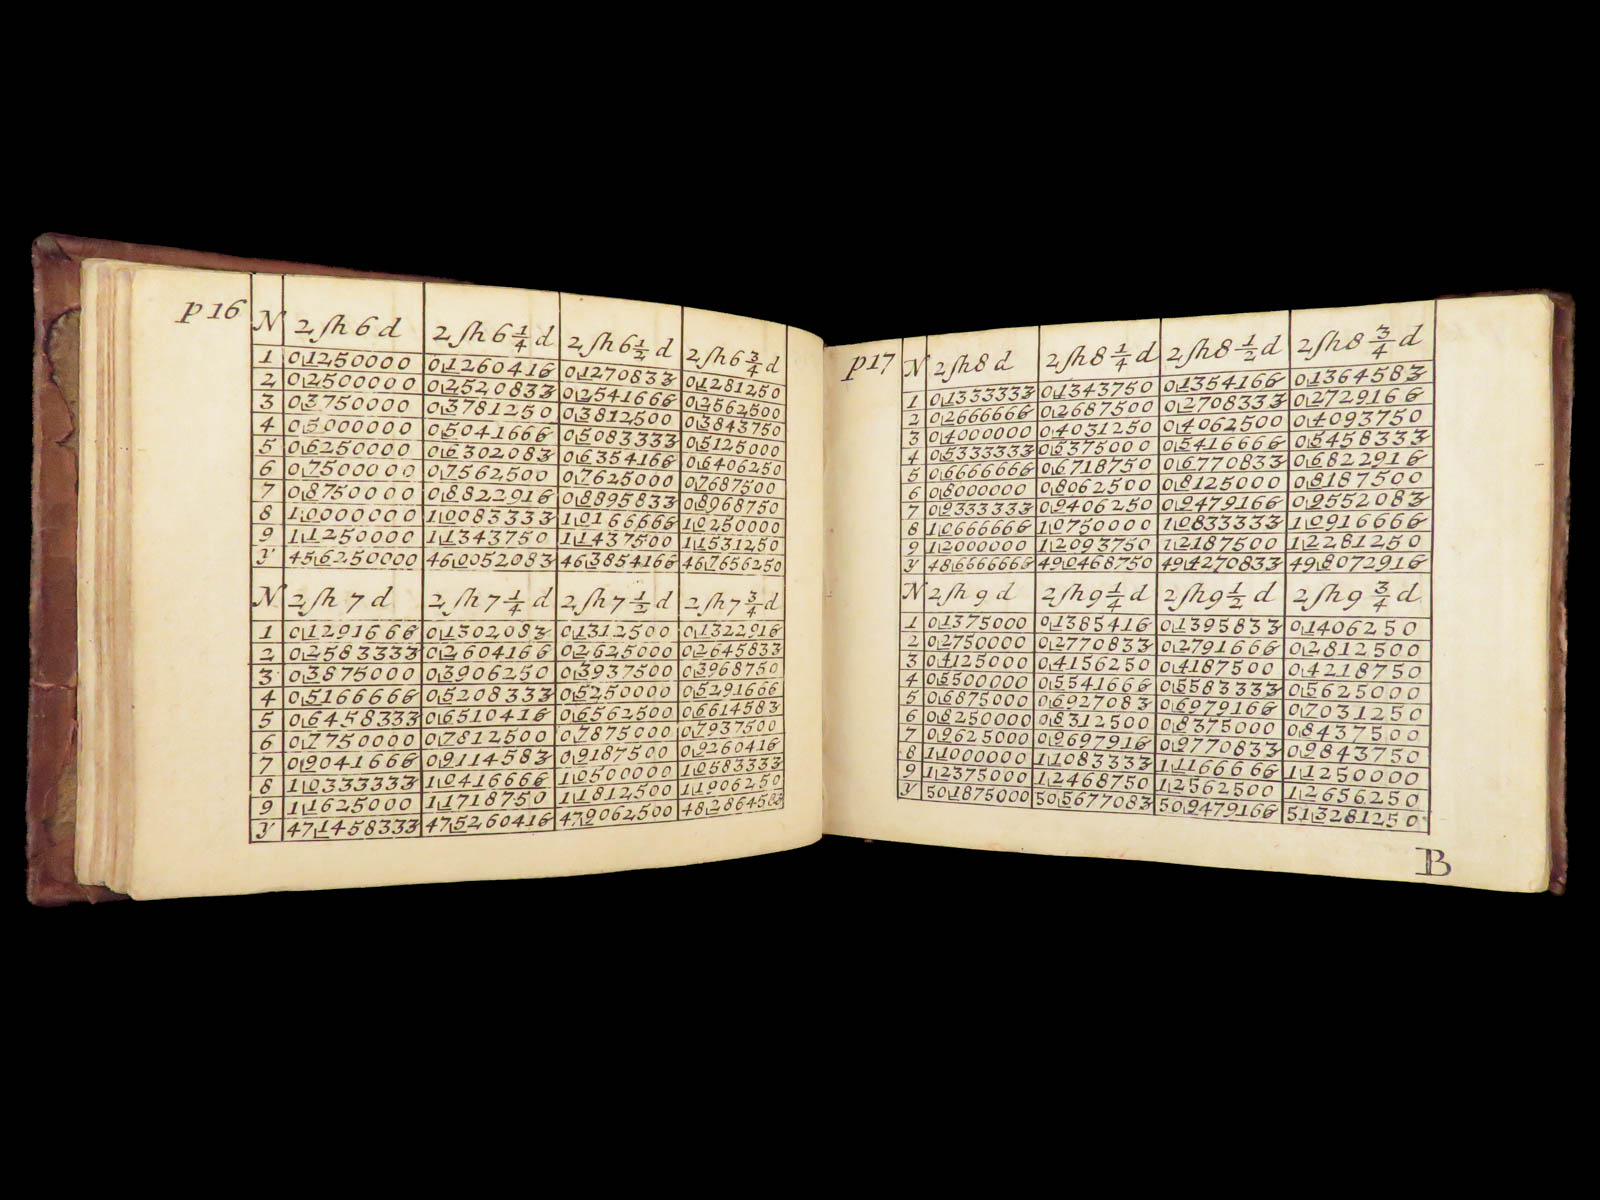 p16
N 2 ſh 6 d 2 ſh 6 1/4 d 2 ſh 6 1/2 d 2 ſh 6 3/4 d
1 0⌊1250000 0⌊1260416 0⌊1270833 0⌊1281250
2 0⌊2500000 0⌊2520833 0⌊2541666 0⌊2562500
3 0⌊3750000 0⌊3781250 0⌊3812500 0⌊3843750
4 0⌊5000000 0⌊5041666 0⌊5083333 0⌊5125000
5 0⌊6250000 0⌊6302083 0⌊6354166 0⌊6406250
6 0⌊7500000 0⌊7562500 0⌊7625000 0⌊7687500
7 0⌊8750000 0⌊8822916 0⌊8895833 0⌊8968750
8 1⌊0000000 1⌊0083333 1⌊0166666 1⌊0250000
9 1⌊1250000 1⌊1343750 1⌊1437500 1⌊1531250
Y 45⌊6250000 46⌊0052083 46⌊3854166 46⌊7656250
N 2 ſh 7 d 2 ſh 7 1/4 d 2 ſh 7 1/2 d 2 ſh 7 3/4 d
1 0⌊1291666 0⌊1302083 0⌊1312500 0⌊1322916
2 0⌊2583333 0⌊2604166 0⌊2625000 0⌊2645833
3 0⌊3875000 0⌊3906250 0⌊3937500 0⌊3968750
4 0⌊5166666 0⌊5208333 0⌊5250000 0⌊5291666
5 0⌊6458333 0⌊6510416 0⌊6562500 0⌊6614583
6 0⌊7750000 0⌊7812500 0⌊7875000 0⌊7937500
7 0⌊9041666 0⌊9114583 0⌊9187500 0⌊9260416
8 1⌊0333333 1⌊0416666 1⌊0500000 1⌊0583333
9 1⌊1625000 1⌊1718750 1⌊1812500 1⌊1906250
Y 47⌊1458333 47⌊5260416 47⌊9062500 48⌊2864583
p17
N 2 ſh 8 d 2 ſh 8 1/4 d 2 ſh 8 1/2 d 2 ſh 8 3/4 d
1 0⌊1333333 0⌊1343750 0⌊1354166 0⌊1364583
2 0⌊2666666 0⌊2687500 0⌊2708333 0⌊2729166
3 0⌊4000000 0⌊4031250 0⌊4062500 0⌊4093750
4 0⌊5333333 0⌊5375000 0⌊5416666 0⌊5458333
5 0⌊6666666 0⌊6718750 0⌊6770833 0⌊6822916
6 0⌊8000000 0⌊8062500 0⌊8125000 0⌊8187500
7 0⌊9333333 0⌊9406250 0⌊9479166 0⌊9552083
8 1⌊0666666 1⌊0750000 1⌊0833333 1⌊0916666
9 1⌊2000000 1⌊2093750 1⌊2187500 1⌊2281250
Y 48⌊6666666 49⌊0468750 49⌊4270833 49⌊8072916
N 2 ſh 9 d 2 ſh 9 1/4 d 2 ſh 9 1/2 d 2 ſh 9 3/4 d
1 0⌊1375000 0⌊1385416 0⌊1395833 0⌊1406250
2 0⌊2750000 0⌊2770833 0⌊2791666 0⌊2812500
3 0⌊4125000 0⌊4156250 0⌊4187500 0⌊4218750
4 0⌊5500000 0⌊5541666 0⌊5583333 0⌊5625000
5 0⌊6875000 0⌊6927083 0⌊6979166 0⌊7031250
6 0⌊8250000 0⌊8312500 0⌊8375000 0⌊8437500
7 0⌊9625000 0⌊9697916 0⌊9770833 0⌊9843750
8 1⌊1000000 1⌊1083333 1⌊1166666 1⌊1250000
9 1⌊2375000 1⌊2468750 1⌊2562500 1⌊2656250
Y 50⌊1875000 50⌊5677083 50⌊9479166 51⌊3281250
B